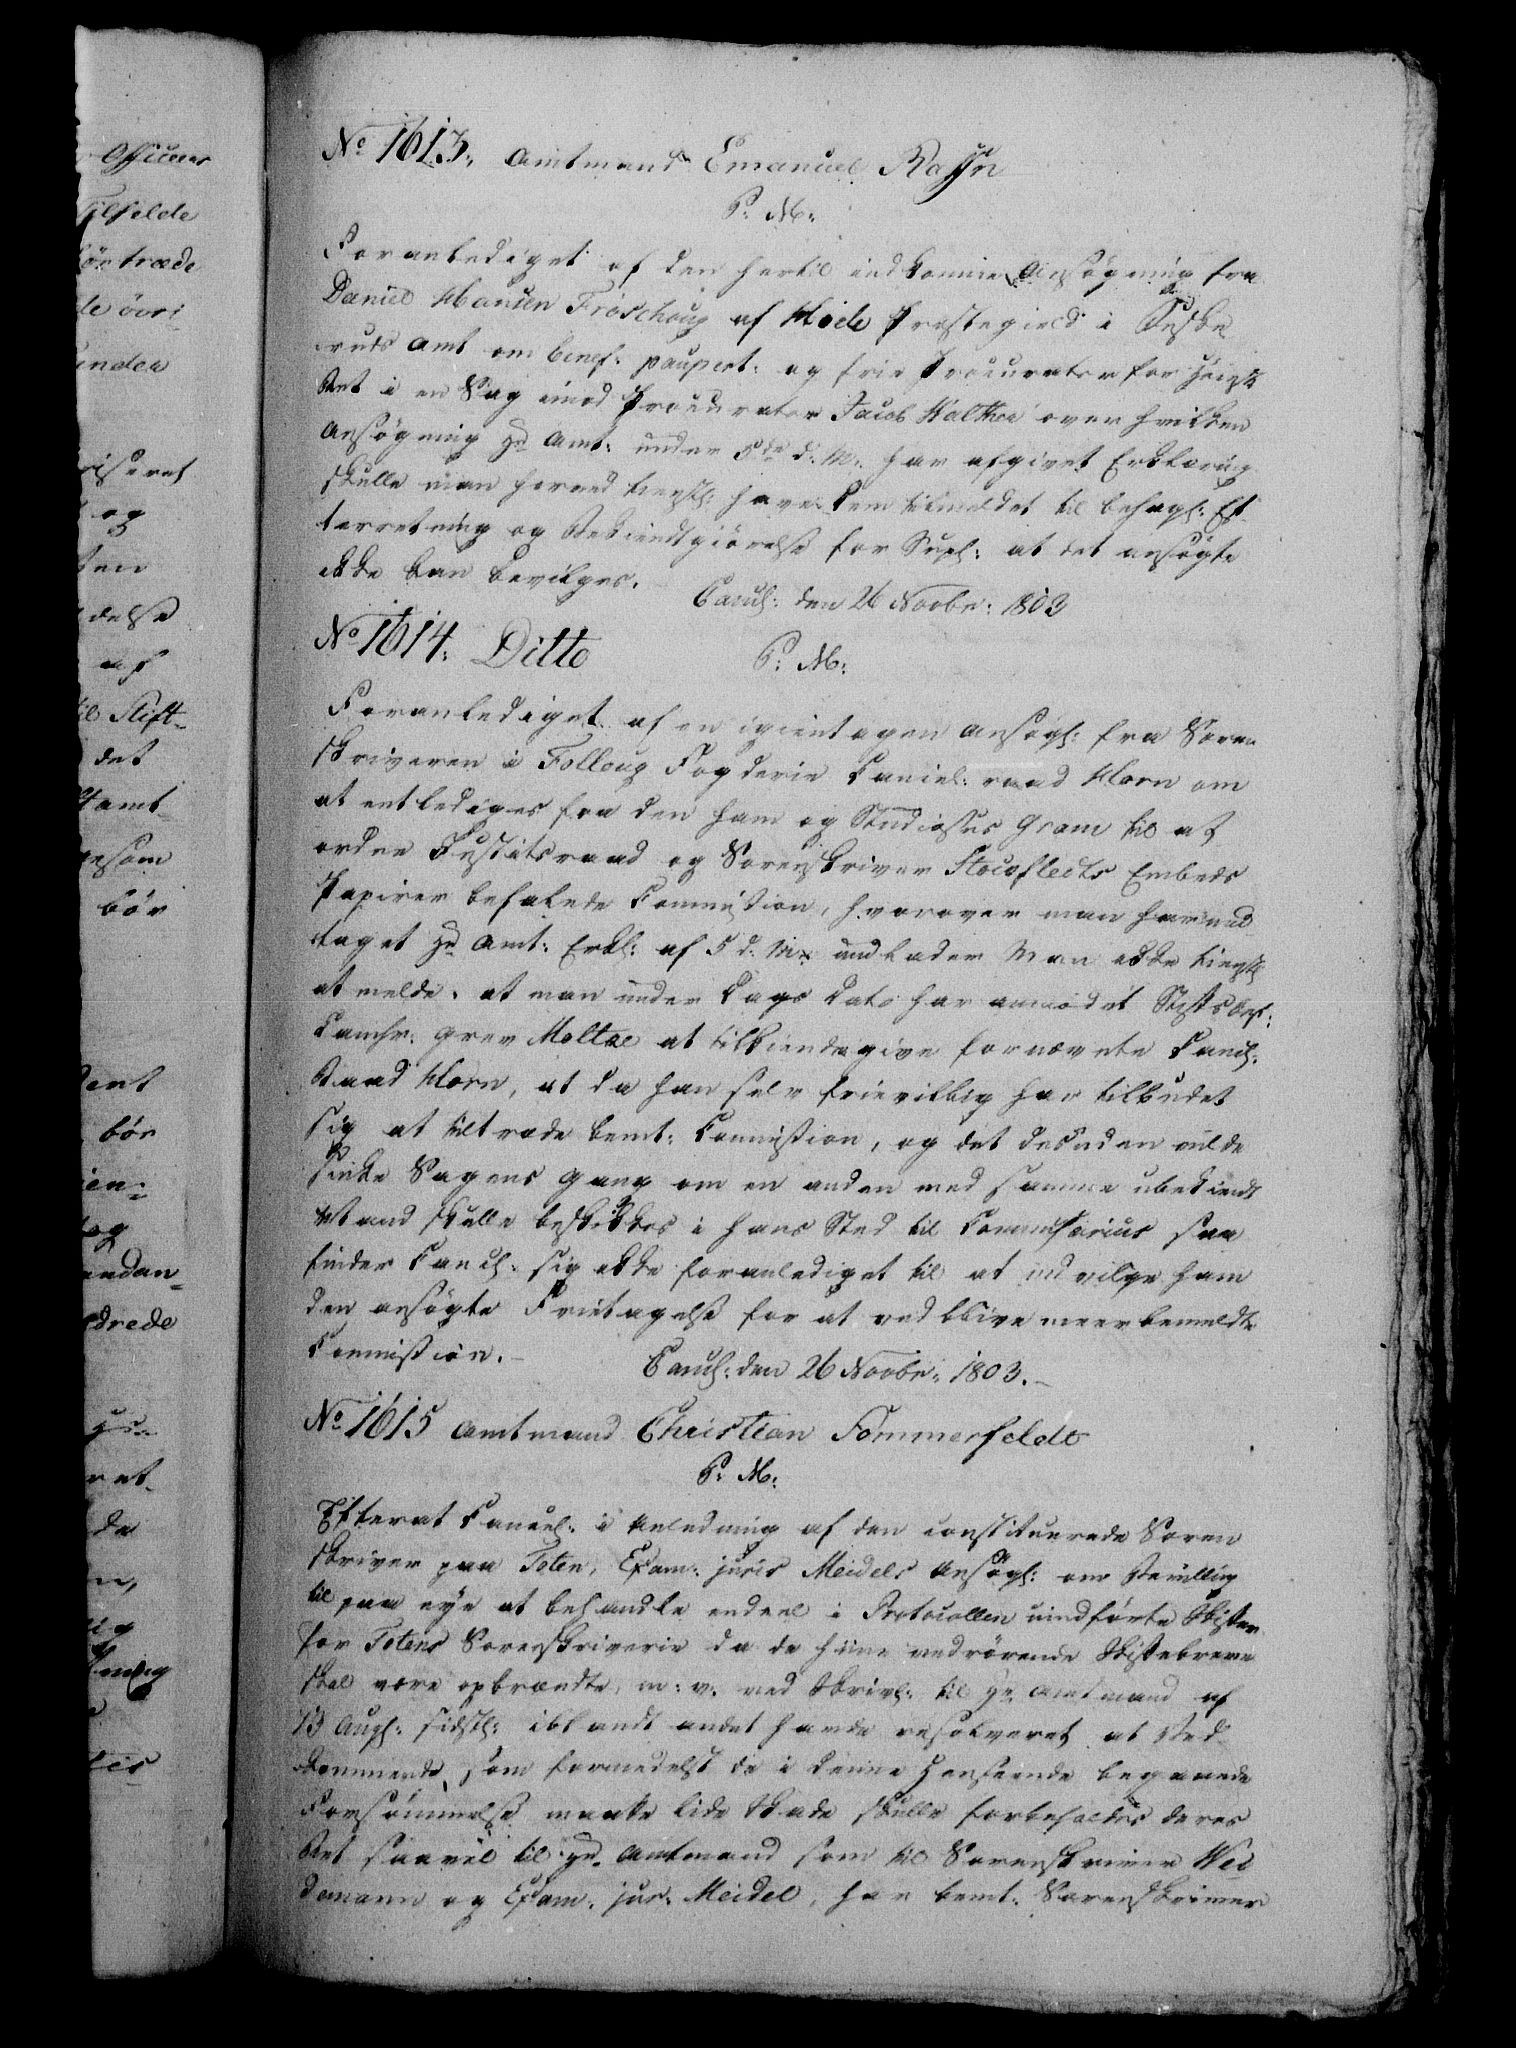 Officerer
Tilfelde
der øvri¬
under
og
delse
af
til Stift¬
det
Stamt
bør
bør
og
andan¬
ret¬
da
No 1613. Amtmand Emanuel Rafn
P. M:
Foranlediget af den hertil indkomne Ansøgning fra
Daniel Hansen Froschoug af Hoele Præstegield i Buske¬
ruds Amt om benef: paupert: og frie Procurator for Høieste
Ret i en Sag imod Procurator Jacob Walther over hvilken
Ansøgning Hr Amt: under 5de d: M: har afgivet Erklæring
skulle man herved tienstl: have Dem tilmeldet til behagl: Ef¬
terretning og Bekiendtgiørelse for Supl: at det ansøgte
ikke kan bevilges.
Cancl: den 26 Novbr: 1803
No 1614. Ditto P: M:
Foranlediget af en igientagen Ansøgn: fra Soren
skriveren i Folloug Fogderie Cancel: raad Horn om
at entlediges fra den ham og Studiosus Gram til at
ordne Justitsraad og Sorenskriver Stocflecths Embeds
Papirer befalede Commission, hvorover man har mod
taget Hr Amt: Erkl: af 5 d: M: undlader man ikke tienstl
at melde, at man under Dags Dato har anmodet Stiftsbef:
Camhr: Grev Moltke at tilkiendegive fornævnte Cancl:
Raad Horn, at da han selv frievillig har tilbudet
sig at tiltræde bemt: Commission, og det desuden vilde
sinke Sagens Gang om en anden med samme ubekiendt
Mand skulle beskikkes i hans Sted til Commissarius saa
finder Cancl: sig ikke foranlediget til at indvilge ham
den ansøgte Fritagelse for at vedblive meerbemeldte
Commission.
Cancl: den 26 Novbr: 1803.
No 1615 Amtmand Christian Sommerfeldt
P: M:
Efterat Cancel: i Anledning af den constituerede Soren
skriver paa Toten, Exam: juris Meidels Ansøgn: om Bevilling
til paa nye at behandle endeel i Protocollen uindførte Skifter
for Totens Sorenskriverie da de hine vedrørende Skiftebreve
skal være opbrændte, m: v: ved Skrivl: til Hr Amtmand af
13 Aug: sidstl: iblandt andet havde resolveret at Ved¬
kommende, som formedelst de i denne Henseende begaaede
Forsømmelse maatte lide Skade skulle forbeholdes deres
Ret saavel til Hr Amtmand som til Sorenskriver Wei¬
demann og Exam: jur: Meidel, har bemt: Sorenskriver